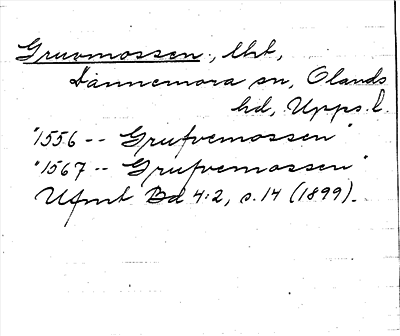 Gruvmossen, lht,
Dannemora sn, Olands
hd, Upps. l.
"1556 -- Grufvemossen"
"1567 -- Grufvemossen"
Ufmt Bd 4:2, s. 14 (1899).